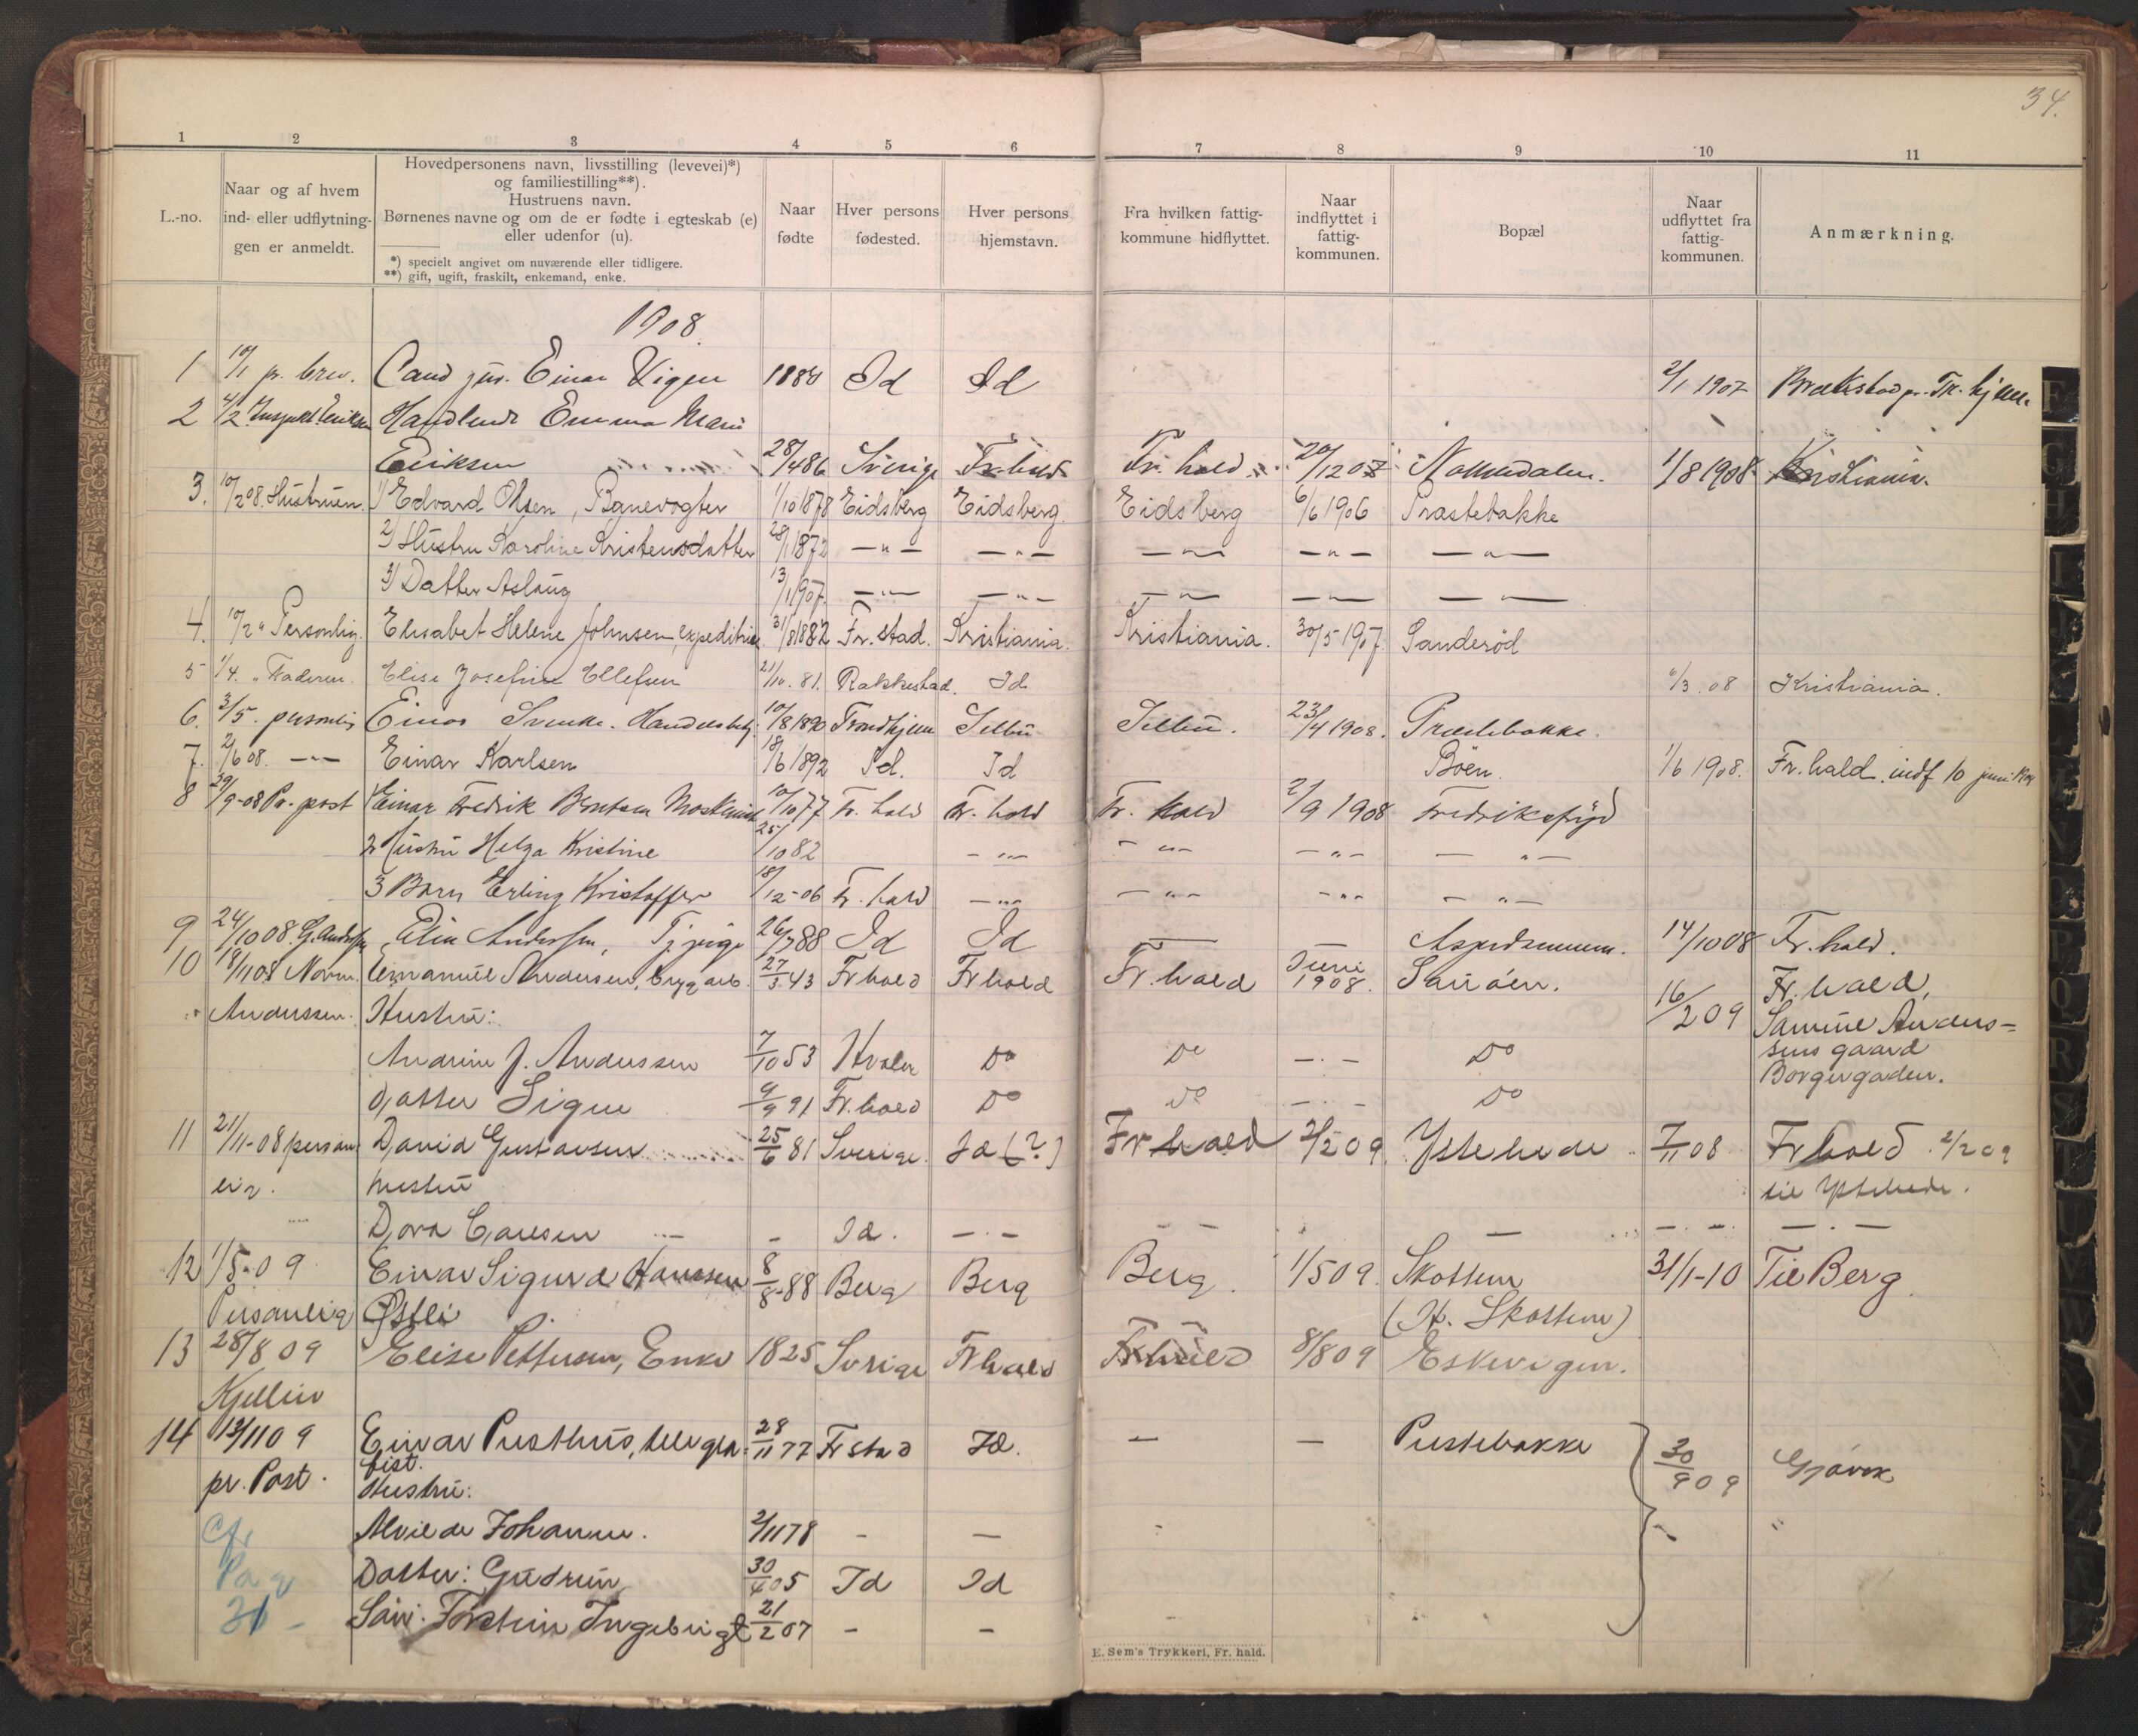 34.
1 2 3 4 5 6 7 8 9 10 11
L.-no.
Naar og af hvem
ind- eller udflytnin-
gen er anmeldt.
Hovedpersonens navn, livsstilling (levevei)*)
og familiestilling**).
Hustruens navn.
Børnenes navne og om de er fødte i egteskab (e)
eller udenfor (u).
*) specielt angivet om nuværende eller tidligere.
**) gift, ugift, fraskilt, enkemand, enke.
Naar
fødte
Hver persons
fødested.
Hver persons
hjemstavn.
Fra hvilken fattig-
kommune hidflyttet.
Naar
indflyttet i
fattig-
kommunen.
Bopæl
Naar
udflyttet fra
fattig-
kommunen.
Anmærkning.
1908.
1 10/1 pr. brev. Cand jur. Einar Vigen 1880 Id Id 2/1 1907 pr. Tr.hjem.
2 4/2 Eriksen Handlende Emma Marie
Eriksen 28/4 86 Sverige Fr.hald Fr. hald 20/12 07 1/8 1908 Kristiania.
3. 10/2 08. Hustruen. 1) Edvard Olsen, Banevogter 1/10 1878 Eidsberg Eidsberg. Eidsberg 6/6 1906 Præstebakke
2) Hustru Karoline Kristensdatter 28/1 1872 — " — — " — — " — — " — — " —
3) Datter Aslaug 13/1 1907. — " — — " — — " — — " — — " —
4. 10/2 " Personlig. Elisabet Helene Johnsen, expeditrice 31/8 1882 Fr.stad. Kristiania. Kristiania. 30/5 1907. Sanderød
5 1/4. " Faderen. Elise Josefine Ellefsen 21/10. 81. Rakkestad. Id /3. 08 Kristiania.
6. 3/5. personlig Einar Svenke. Handelsbetj. 10/8 1890 Trondhjem Selbu Selbu. 23/4 1908. Præstebakke.
7. 2/6 08. — " — Einar Karlsen 18/6 1892 Id. Id Bøen. 1/6 1908. Fr.hald. indf 10 juni 1908
8 29/9-08 Pr. post 1 Einar Fredrik Berntsen Maskinist 10/10 77 Fr. hald Fr. hald Fr. hald 2/9 1908 Fredriksfryd
2 Hustru Helga Kristine 25/10 82 — " — — " — — " — — " —
3 Barn Erling Kristoffer 18/12-06 Fr. hald — " — — " — — " — — " —
9 24/10 08. G. Andersen Elin Andersen, Tj.pige 26/7 88 Id Id — Aspedammen. 14/10 08 Fr.hald.
10 18/11 08 Norm. Emanuel Andersen, brygarb. 27/3 43 Fr hald Fr hald Fr. hald Juni 1908. Sauøen. 16/2 09 Fr. hald,
Anderssen. Hustru: Samuel Anders-
Andrine J. Anderssen 7/10 53 Hvaler Do Do — . — Do sens gaard
Datter Signe 9/9 91 Fr. hald Do Do — . — Do Borgergaden.
11 21/11-08 person David Gustavsen 25/6 81 Sverige. Id (?) Fr hald 2/2 09 Ystehede 7/11 08 Fr hald. 2/2 09
lig. hustru til Ystehede.
Dora Carlsen — Id. — . — — — — — . — — . —
12 1/5-09 Einar Sigurd Hanssen 8/8-88 Berg Berg Berg. 1/5 09. Skotten 31/1-10 Til Berg.
Personlig Østli (H. Skotten)
13 28/8 09 Elise Pettersen, Enke 1825 Sverige Fr hald Fr hald 8/8 09 Eskevigen.
Kjellin
14 13/11 09 Einar Presthus, telegra- 28/11 77 Fr stad Id. — — Prestebakke 30/9 09 Gjøvik
pr. Post. fist.
Hustru:
Cfr Alvilde Johanne. 2/11 78 — — — "
Pag Datter: Gudrun 30/4 05 Id Id
31 — Søn: Torstein Ingebrigt 21/2 07 — —
E. Sem's Trykkeri, Fr. hald.